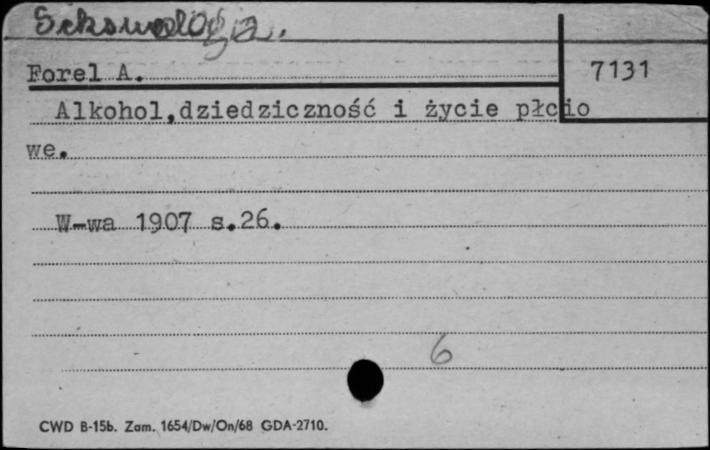 Seksuologia.
Forel A.
7131
Alkohol,dziedziczność i życie płcio
we.
W-wa 1907 s.26.
6
CWD B-15b. Zam. 1654/Dw/On/68 GDA-2710.